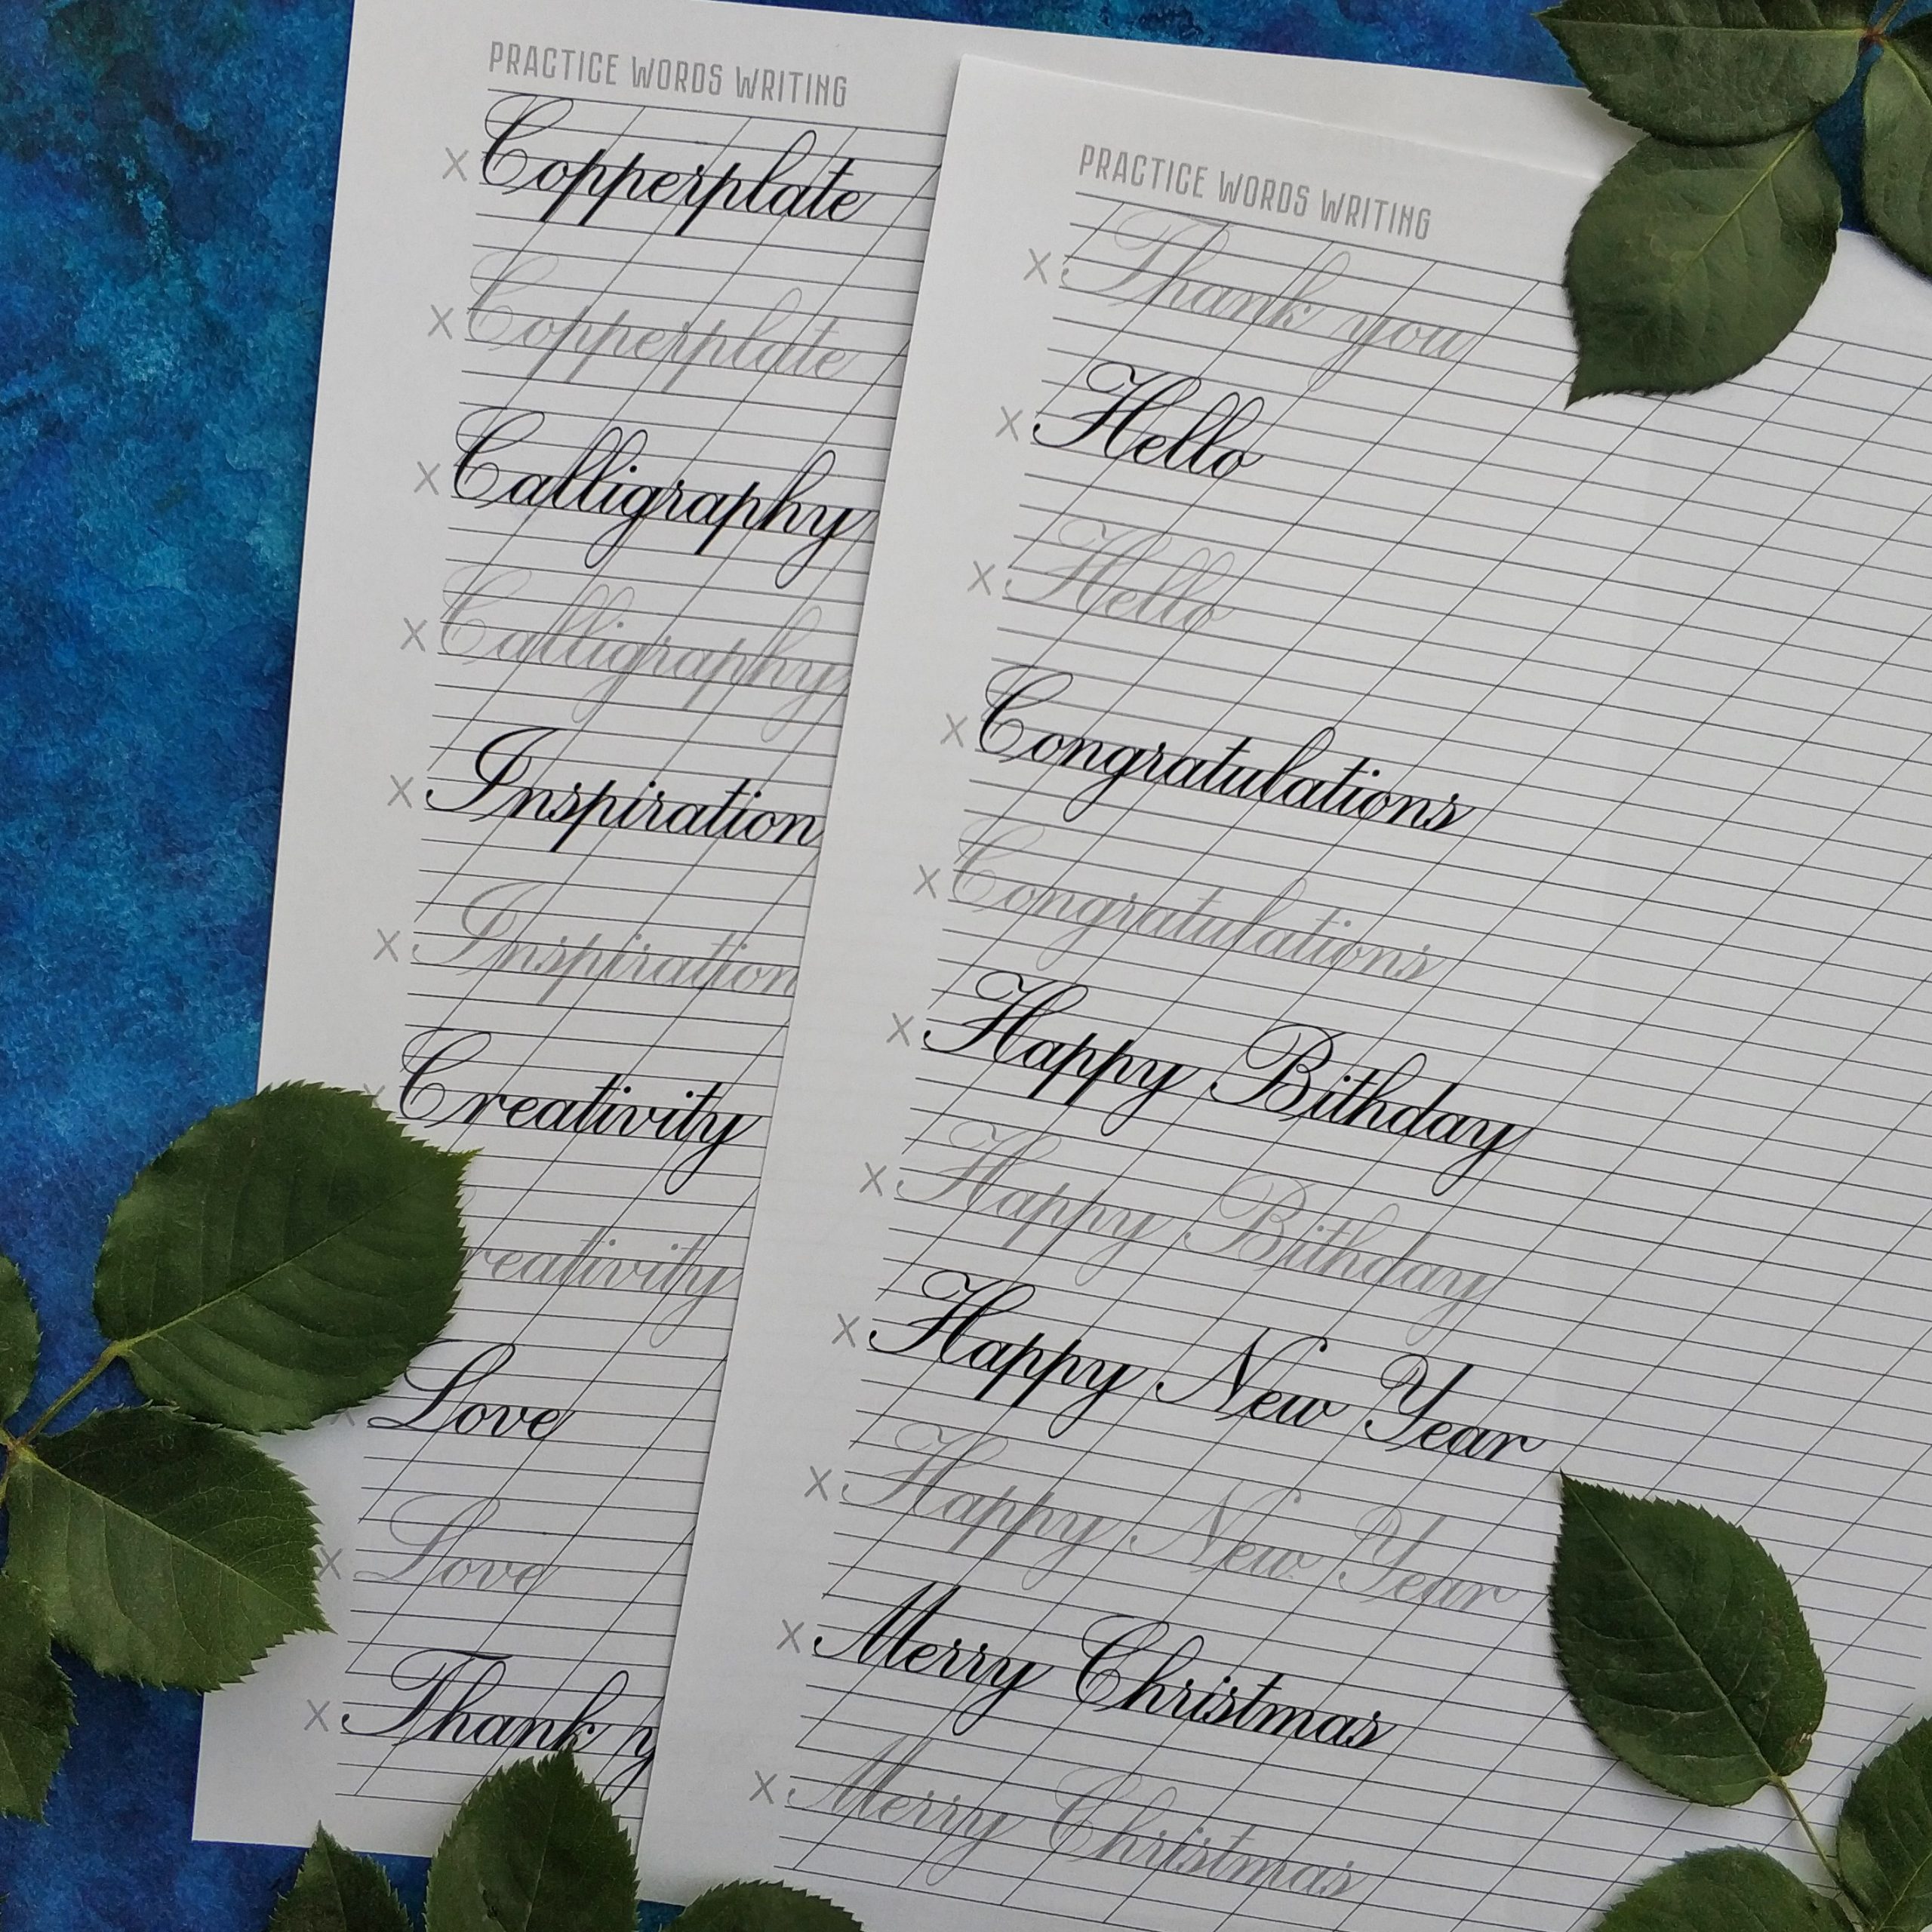 PRACTICE WORDS WRITING
x Copperplate
x Copperplate
x Calligraphy
x Calligraphy
x Inspiration
x Inspiration
x Creativity
reativity
x Love
x Love
x Thank y
PRACTICE WORDS WRITING
x Thank you
x Hello
x Hello
x Congratulations
x Congratulations
x Happy Bithday
x Happy Bithday
x Happy New Year
x Happy New Year
x Merry Christmas
x Merry Christmas